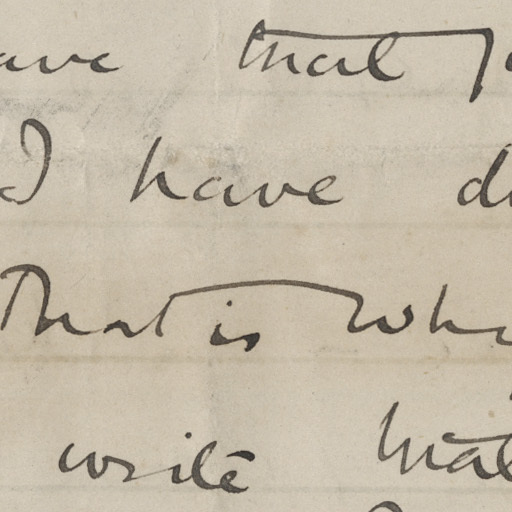 ave that
I have d
That is wha
write that